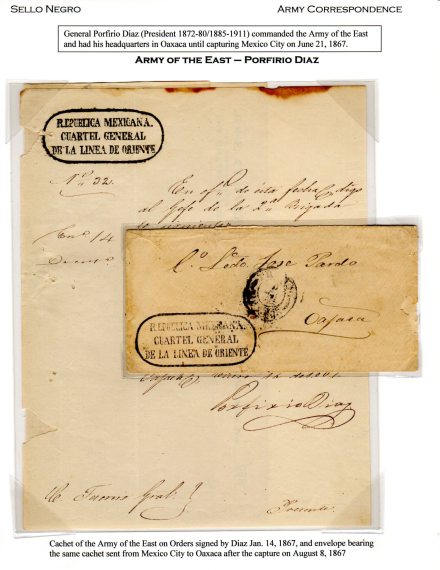 SELLO NEGRO
ARMY CORRESPONDENCE
General Porfirio Diaz (President 1872-80/1885-1911) commanded the Army of the East
and had his headquarters in Oaxaca until capturing Mexico City on June 21, 1867.
ARMY OF THE EAST – PORFIRIO DIAZ
REPUBLICA MEXICANA.
CUARTEL GENERAL
DE LA LINEA DE ORIENTE
Nº 32.
En of.º de esta fecha digo
al Gefe de la 2ª Brigada
lo siguiente
Enº 14
C.º Lcdo. Jose Pardo
Oajaca
REPUBLICA MEXICANA.
CUARTEL GENERAL
DE LA LINEA DE ORIENTE
Porfirio Diaz
Presente
Cachet of the Army of the East on Orders signed by Diaz Jan. 14, 1867, and envelope bearing
the same cachet sent from Mexico City to Oaxaca after the capture on August 8, 1867